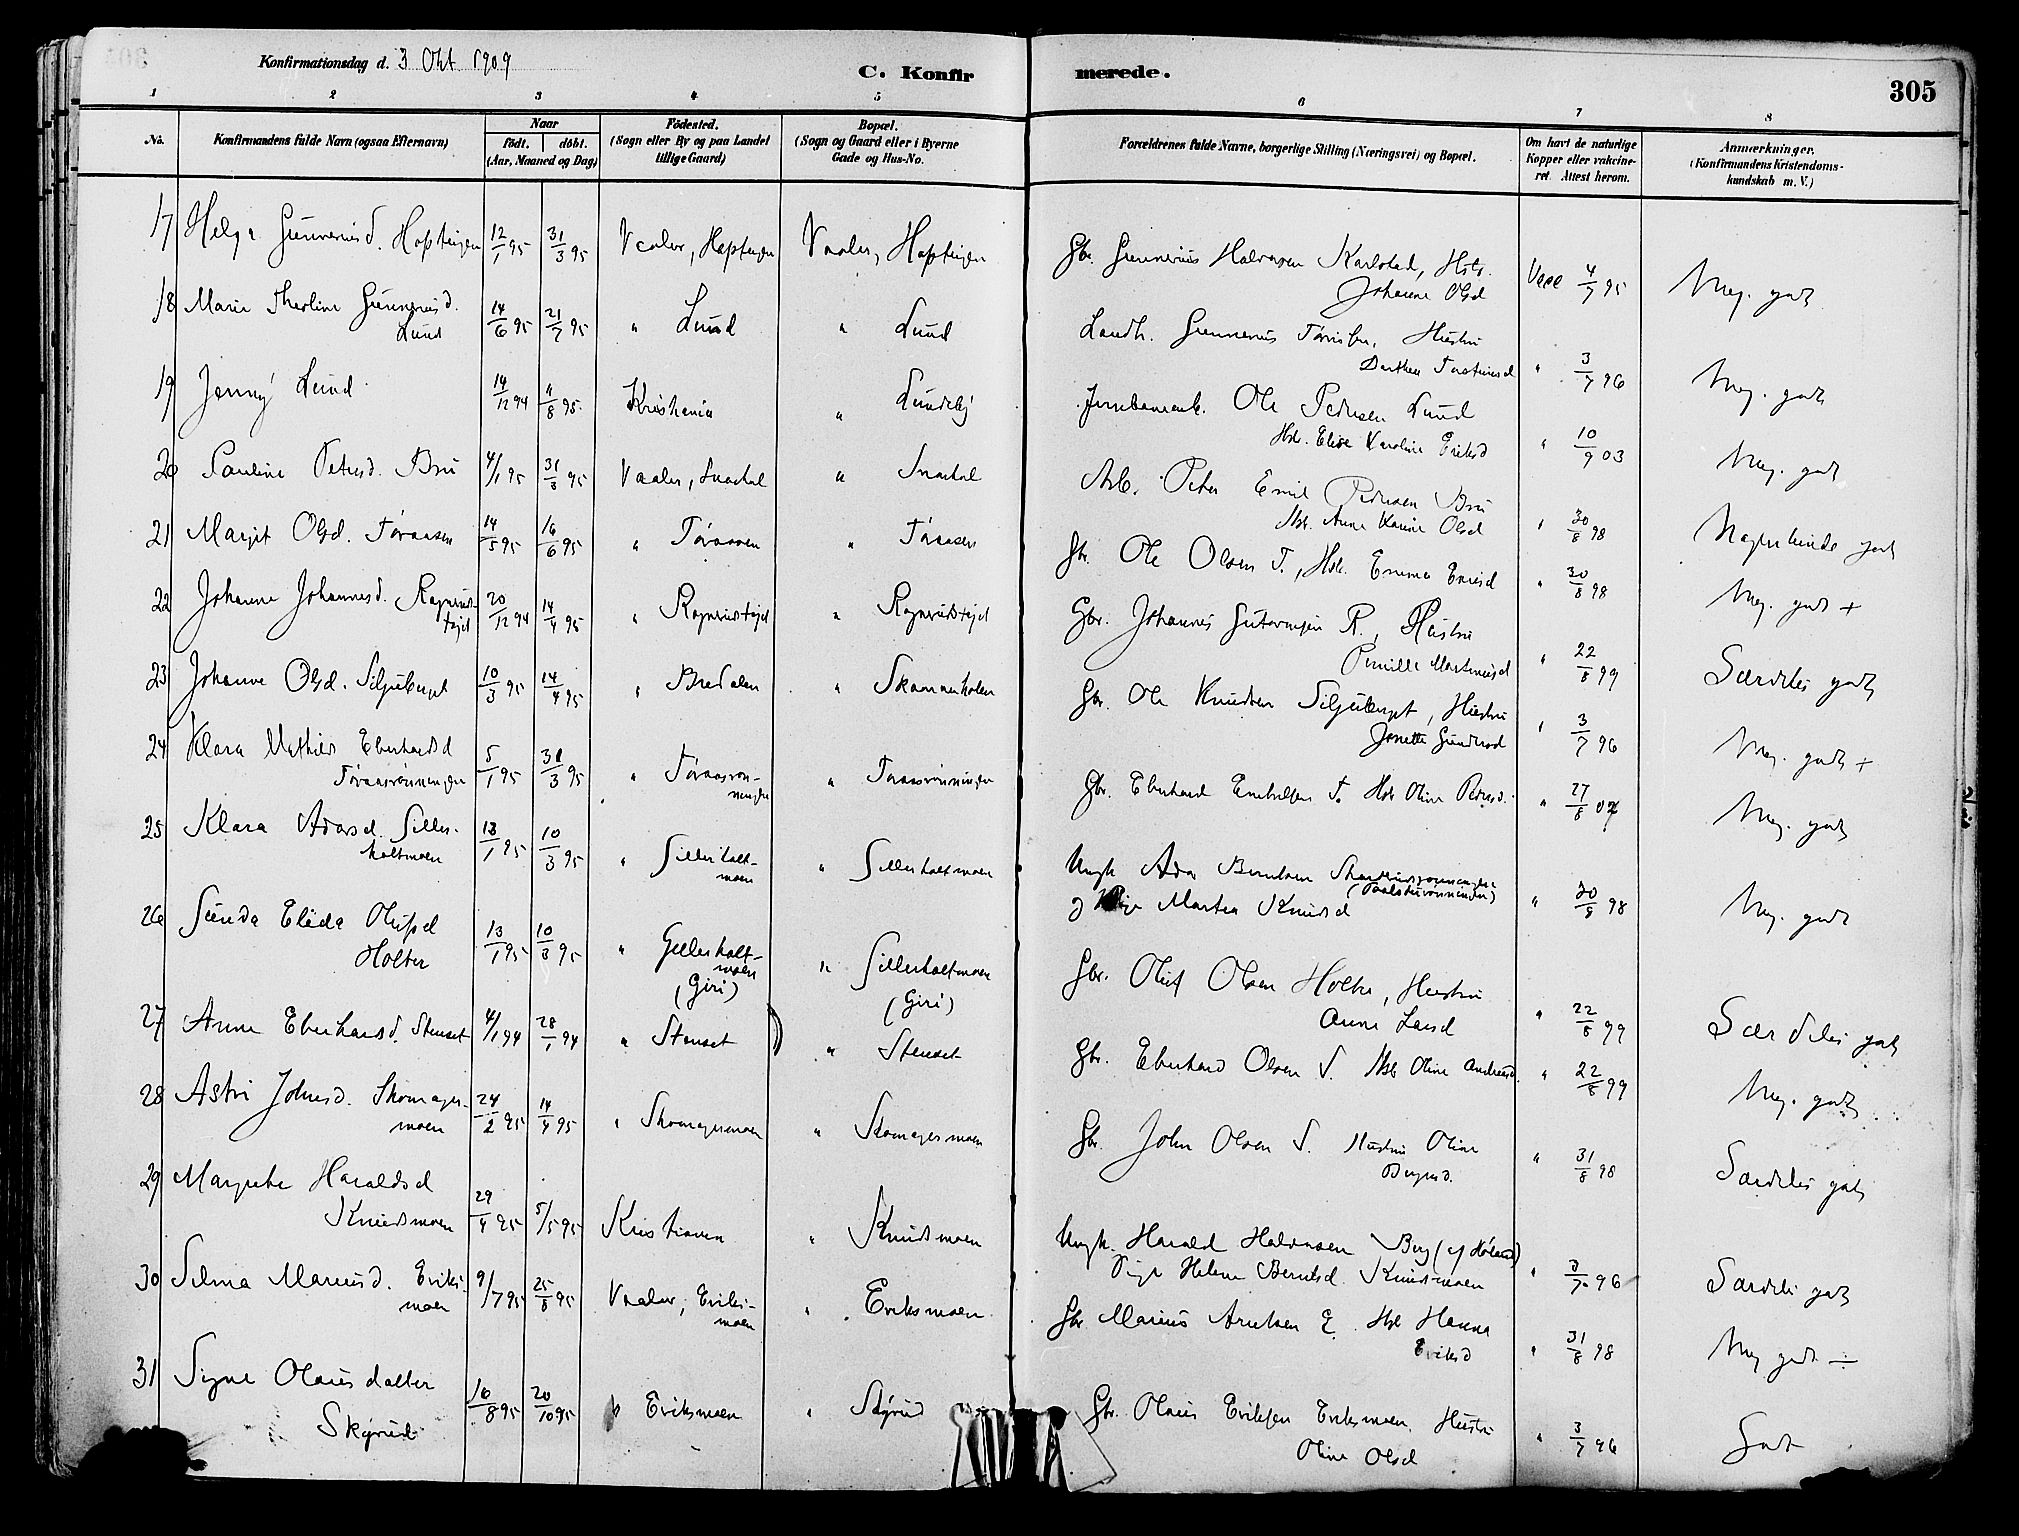 Konfirmationsdag d. 3 Okt 1909
C. Konfirmerede.
305
1 2 3 4 5 6 7 8
No.
Konfirmandens fulde Navn (ogsaa Efternavn)
Naar
født. døbt.
(Aar, Maaned og Dag)
Fødested.
(Sogn eller By og paa Landet
tillige Gaard)
Bopæl.
(Sogn og Gaard eller i Byerne
Gade og Hus-No.
Forældrenes fulde Navne, borgerlige Stilling (Næringsvei) og Bopæl.
Om havt de naturlige
Kopper eller vakcine-
ret. Attest herom.
Anmærkninger.
(Konfirmandens Kristendoms-
kundskab m. V.)
17 Helga Gunneriusd. 12/1 95 31/3 95 Vaaler, Vaaler, Gbr. Gunnerius Halvorsen Karlstad, Hstr. Vacc 4/7 95 Meg. godt
Johanne Olsd
18 Marie Gunneriusd. 14/6 95 21/7 95 " Lund " Lund Gunnerius Hustru
Lund
Dorthea " 3/7 96 Meg. godt
19 Jenny Lund 14/12 94 4/8 95 Kristiania " Lundeby Ole Pedersen Lund
Hstr. Elise Karoline Eriksd " 10/9 03 Meg. godt
20 Pauline Petersd. Bru 4/1 95 31/3 95 Vaaler, " Arb. Peter Emil Pedersen Bru
Hstr. Anne Karine Olsd " 30/8 98 godt
21 Margit Olsd.Føraasen 14/5 95 16/6 95 " Føraasen " Føraasen Gbr. Ole Olsen F., Hstr. Emma " 30/8 98 Meg. godt +
22 Johanne Johannesd. 20/12 94 14/4 95 " " Gbr. Johannes R., Hustru
Pernille Martinusd " 22/8 99 Særdeles godt
23 Johanne Olsd. Siljuberget 10/3 95 14/4 95 " Bredalen " Gbr. Ole Knudsen Siljuberget, Hustru
Jonette " 3/7 96 Meg. godt +
24 Klara Mathilde Eberhardsd 5/1 95 31/3 95 " Føraasrøn- " Føraasrønningen Gbr. Eberhard F. Hstr Oline Pedersd. " 27/8 Meg. godt
Føraasrønningen
ningen
25 Klara Adorsd. Giller- 13/1 95 10/3 95 " Gillerholt- " Gillerholtmoen Ungk. Ador Berntsen
holtmoen
moen
og Pige Martea Knudsd " 98 Meg. godt
26 Gunda Elida Olufsd 13/1 95 10/3 95 " Gillerholt- " Gillerholtmoen Gbr. Oluf Olsen Holter, Hustru
Holter
moen
(Giri) (Giri)
Anne Larsd " 22/8 99 Særdeles godt
27 Anne Eberhardsd. Stenset 4/1 94 28/1 94 " Stenset " Stenset Gbr. Eberhard Olsen S. Hstr Oline Andreasd. " 22/8 99 Meg. godt
28 Astri Johnsd. Skomager- 24/2 95 14/4 95 " Skomagermoen " Skomagermoen Gbr. John Olsen S. Hustru Oline
moen
" 31/8 98 Særdeles godt
29 Margrete Haraldsd
Knudsmoen 29/4 95 5/5 95 " Knudsmoen Ungk. Harald Halvorsen Berg (af Høland)
Pige Helene Berntsd. Knudsmoen " 3/7 96 Særdeles godt
30 Selma Mariusd. Eriks- 9/7 95 25/8 95 Vaaler, Eriks- " Eriksmoen Gbr Marius Arntsen E. Hstr Hanna
moen
moen
Eriksd " 31/8 98 Meg godt ÷
31 Signe Olausdatter
Skyrud 16/8 95 20/10 95 " Eriksmoen " Skyrud Gbr. Olaus Eriksen Eriksmoen. Hustru
Oline Olsd " 3/7 96 Godt